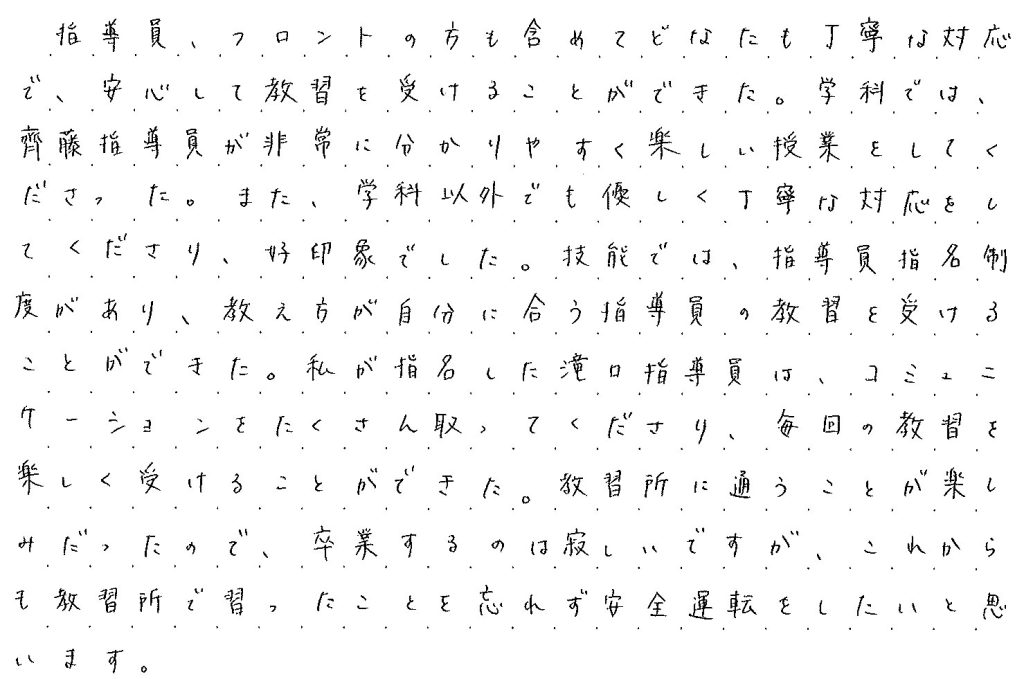 指導員、フロントの方も含めてどなたも丁寧な対応
で、安心して教習を受けることができた。学科では、
齊藤指導員が非常に分かりやすく楽しい授業をしてく
ださった。また、学科以外でも優しく丁寧な対応をし
てくださり、好印象でした。技能では、指導員指名制
度があり、教え方が自分に合う指導員の教習を受ける
ことができた。私が指名した滝口指導員は、コミュニ
ケーションをたくさん取ってくださり、毎回の教習を
楽しく受けることができた。教習所に通うことが楽し
みだったので、卒業するのは寂しいですが、これから
も教習所で習ったことを忘れず安全運転をしたいと思
います。